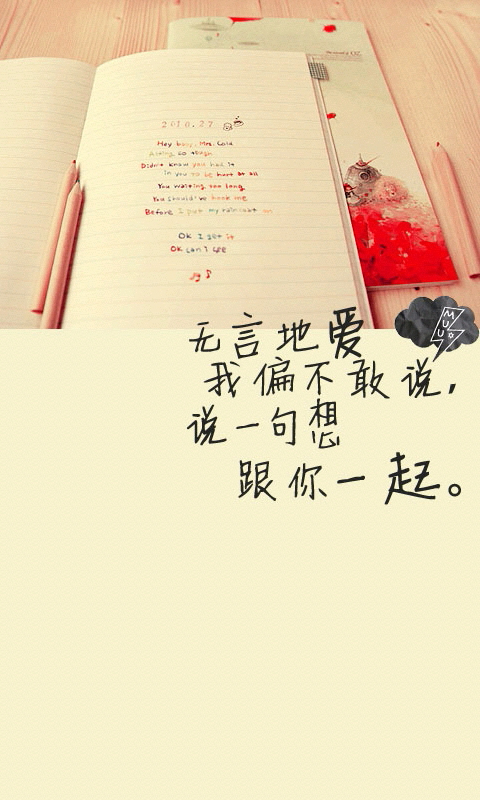 2010.27
Hey boy, Mrs. Cold
Acting so tough
Didn't know you had it
in you to be hurt at all
You waiting too long
You should've hook me
Before I put my raincoat on
OK I get it
OK can I see
无言地爱
我偏不敢说,
说一句想
跟你一起。
MUUO